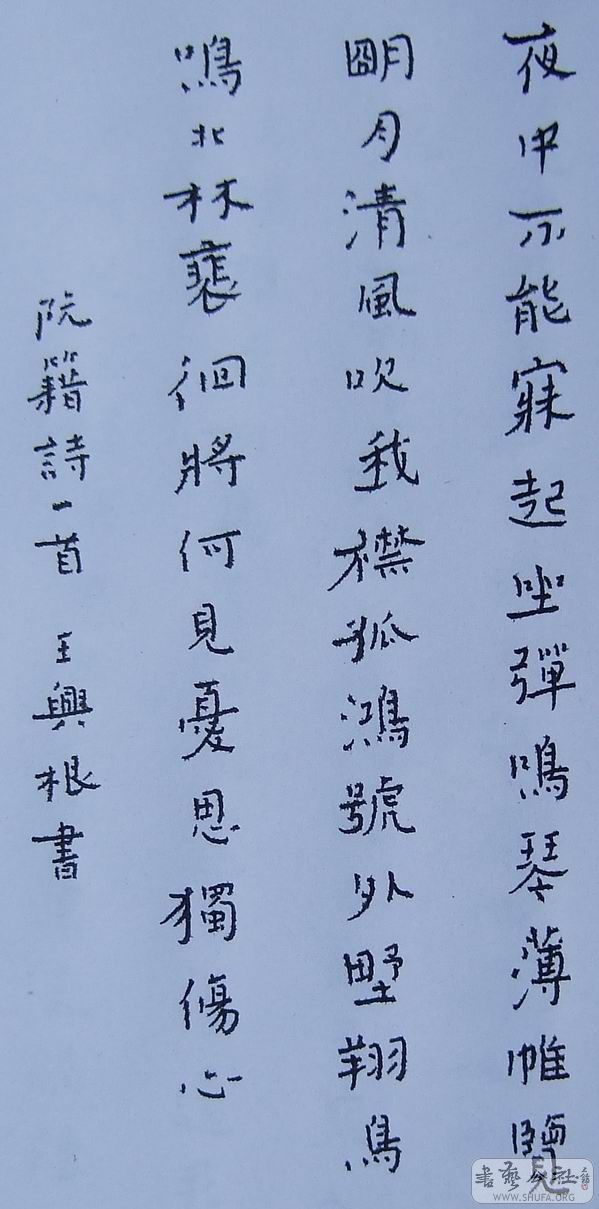 夜中不能寐起坐彈鳴琴薄帷鑒
朙月清風吹我襟孤鴻號外野翔鳥
鳴北林裵徊將何見憂思獨傷心
阮籍詩一首 王興根書
WWW.SHUFA.ORG